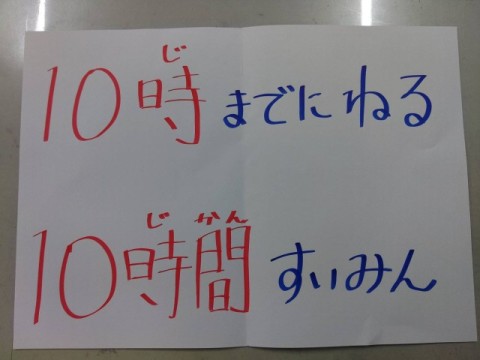 じ
10時までにねる
じかん
10時間すいみん